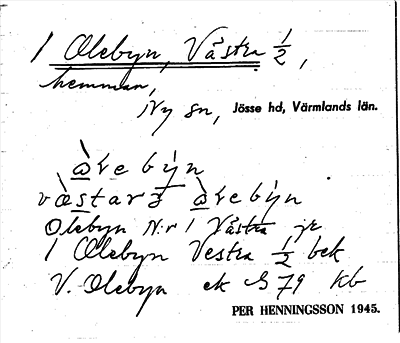 1 Olebyn, Västra 1/2,
hemman,
Ny sn, Jösse hd, Värmlands län.
àvebỳn
vàstarə àvebỳn
Olebyn N:r 1 Västra jr
1 Olebyn Vestra 1/2 bek
V. Olebyn ek S 79 kb
PER HENNINGSSON 1945.